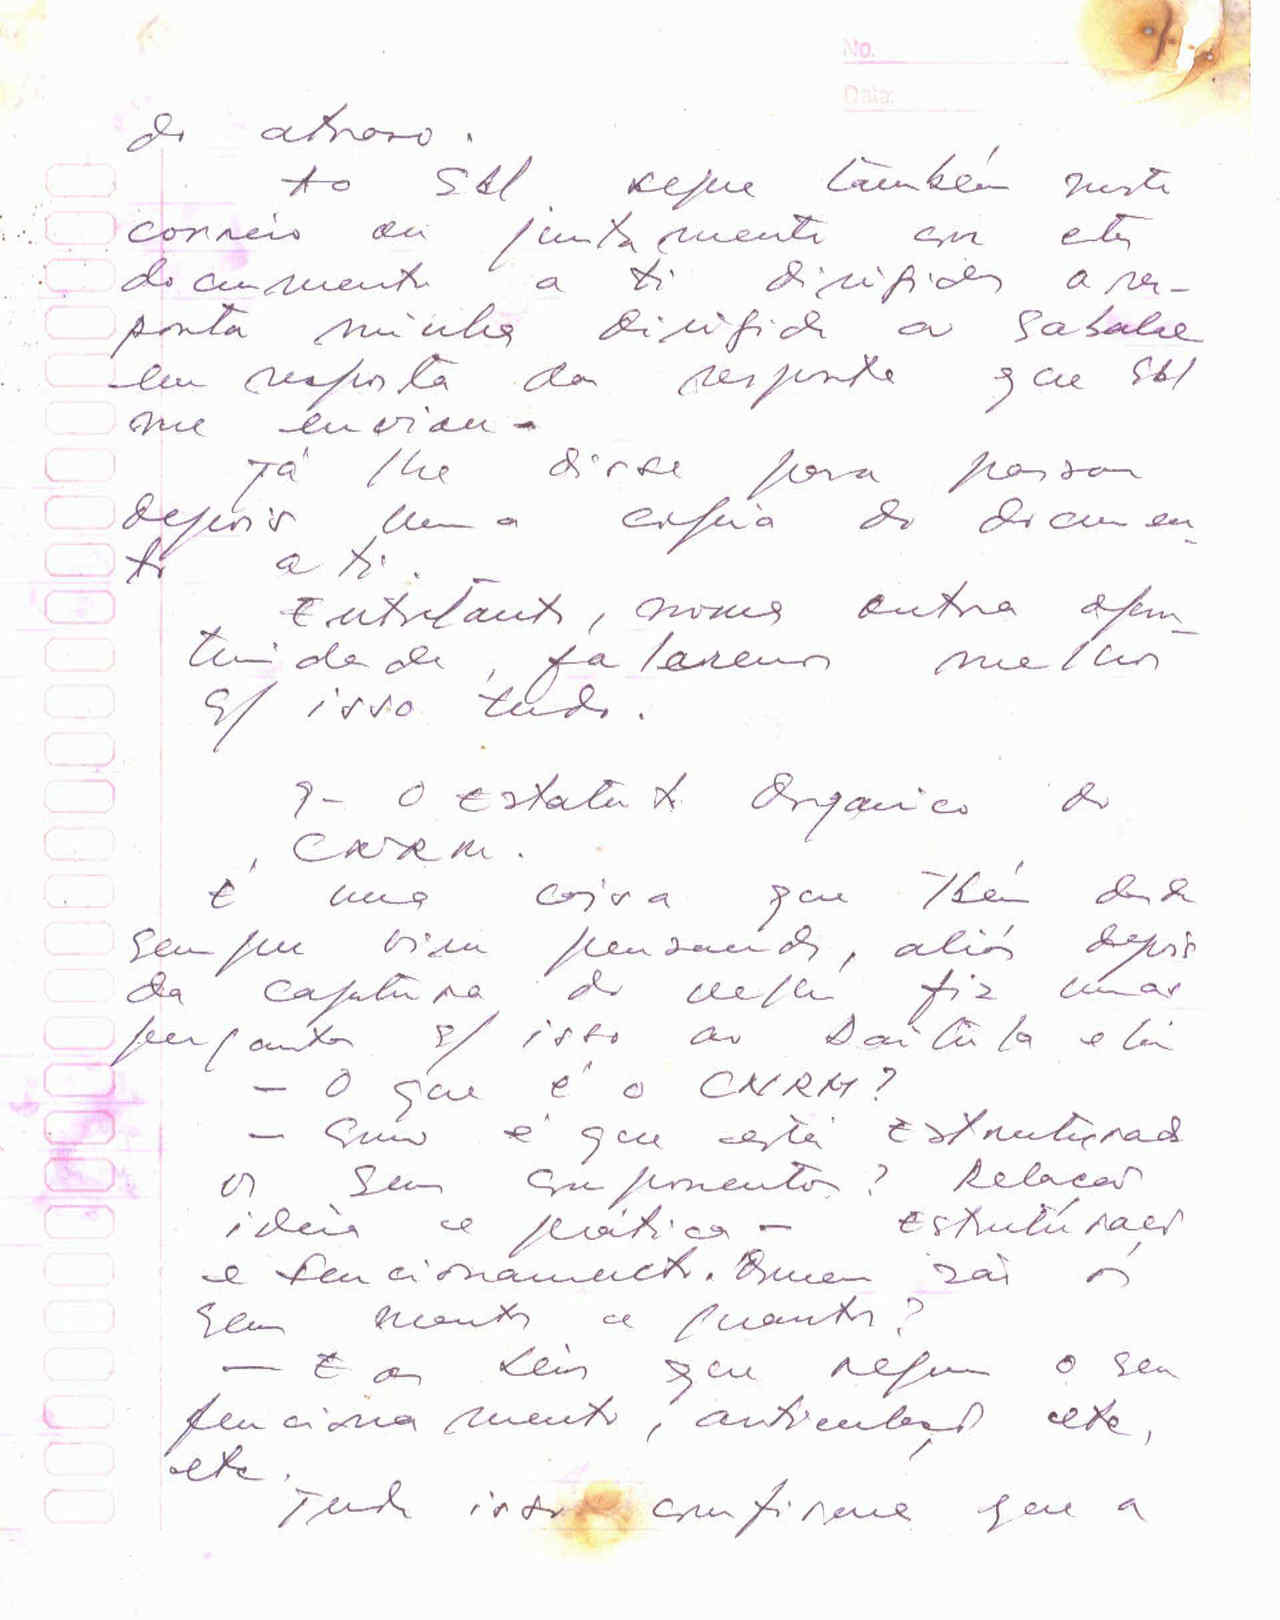 No.
Data:
do atraso.
Ao Sbl segue também neste
correio ou juntamente com estes
documento a ti dirigidos a res-
posta minha dirigida ao Sabalae
em resposta da resposta que Sbl
me enviou.
Já lhe disse para passar
depois uma cópia do documen-
to a ti.
Entretanto, numa outra opor-
tunidade, falaremos melhor
s/ isso tudo.
9- O Estatuto Orgânico do
CNRM.
É uma coisa que Tbém desde
sempre vim pensando, aliás depois
da captura do fiz umas
perguntas s/ isso ao Saitula e Lin
- O que é o CNRM?
- Como é que está Estruturado
os seus componentes? Relação
ideia e prática - Estruturação
e funcionamento. Quem são os
seus e quantos?
- E as Leis que regem o seu
funcionamento, articulação etc,
etc.
Tudo isso confirma que a